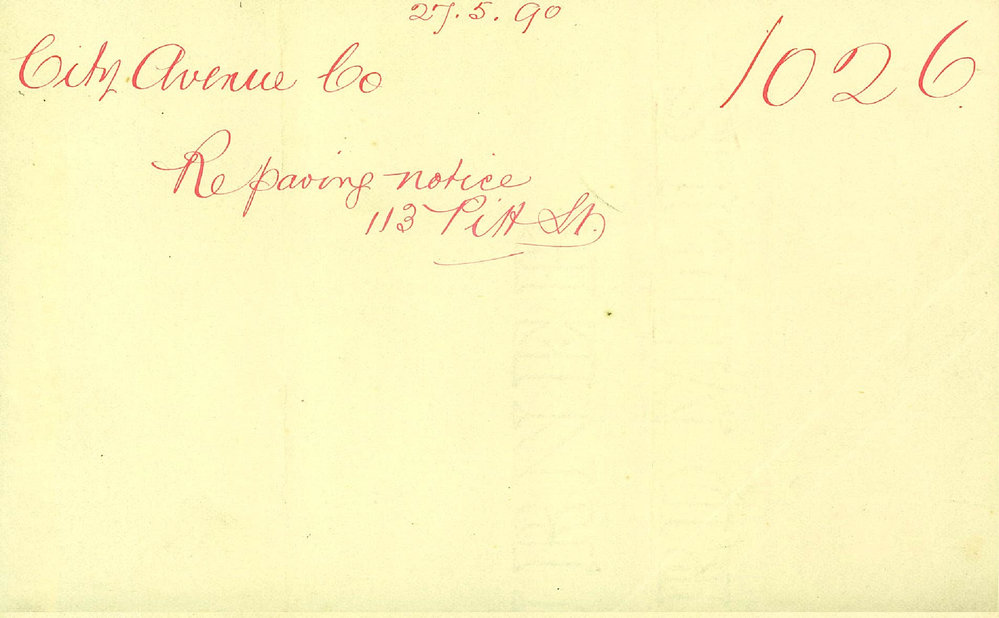 27.5.90
City Avenue Co
1026
Re paving notice
113 Pitt St.